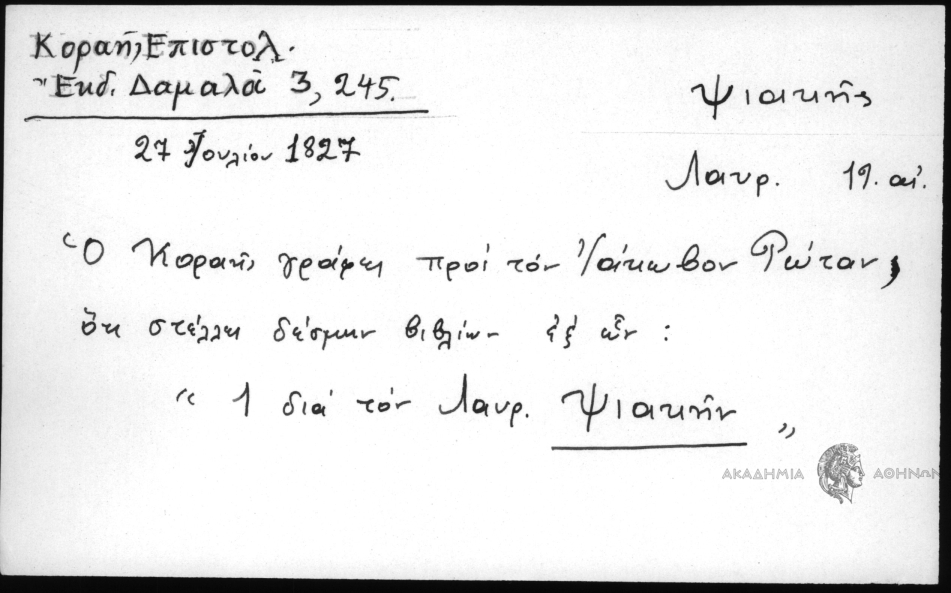 Κοραῆ, Επιστολ.
Ἔκδ. Δαμαλᾶ 3, 245.
27 Ἰουλίου 1827
Ψιακῆς
Λαυρ. 19. αἰ.
Ὁ Κοραῆς γράφει πρὸς τὸν Ἰάκωβον Ρώταν,
ὅτι στέλλει δέσμην βιβλίων ἐξ ὧν :
“ 1 διὰ τὸν Λαυρ. Ψιακῆν „
ΑΚΑΔΗΜΙΑ ΑΘΗΝΩΝ